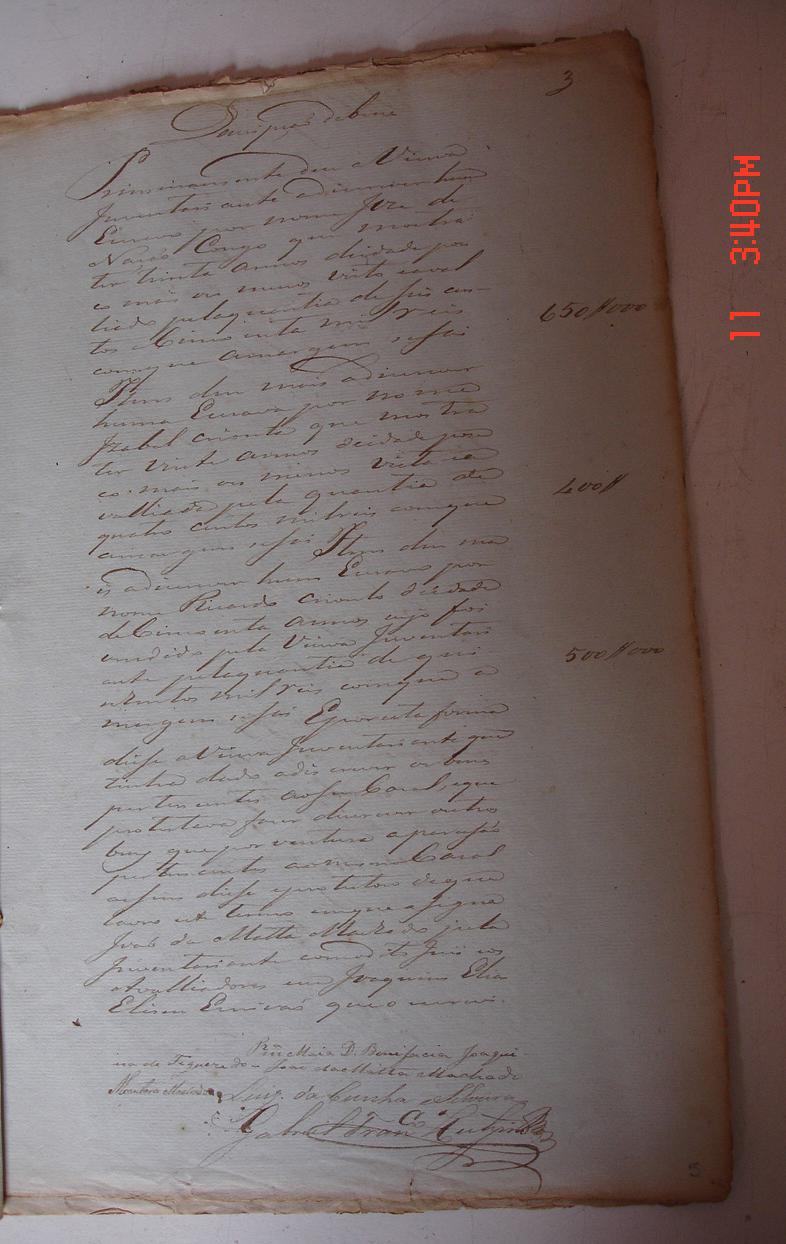 3
Descripçaõ de bens
Primeiramente deu a Viuva
Inventariante a discrever hum
Escravo por nome Joze de
Naçaõ Congo que mostra
ter trinta annos deidade pou
co mais ou menos visto e aval
liado pela quantia de seis cen
tos e Cincoenta mil reis
com que a margem se sai
650$000
Item deu mais a discrever
huma Escrava por nome
Izabel crioula que mostra
ter vinte annos deidade pou
co mais ou menos vista e a
valliada pela quantia de
quatro centos mil reis com que
400$
a margem se sai Item deu ma
is a discrever hum Escravo por
nome Ricardo crioulo deidade
de Cincoenta annos cujo foi
vendido pela Viuva Inventari
ante pela quantia de qui
nhentos mil reis com que a
500$000
margem se sai E por esta forma
disse a Viuva Inventariante que
tinha dado a discrever os bens
pertencentes ao seu Casal, e que
protestava fazer discrever outros
bens que por ventura apareçaõ
pertencentes ao mesmo Casal
assim disse e protestou de que
lavro este termo em que asigna
Joaõ da Matta Machado pela
Inventariante com o dito Juis e os
Avalliadores eu Joaquim Elia
Eliseu Escrivaõ que o escrevi.
D. Bonifacia Joaqui-
na de Figueredo Joaõ da Matta Machado
Machado
Luiz da Cunha e Silveira
Gabriel Fran.co
3
11 3:40PM